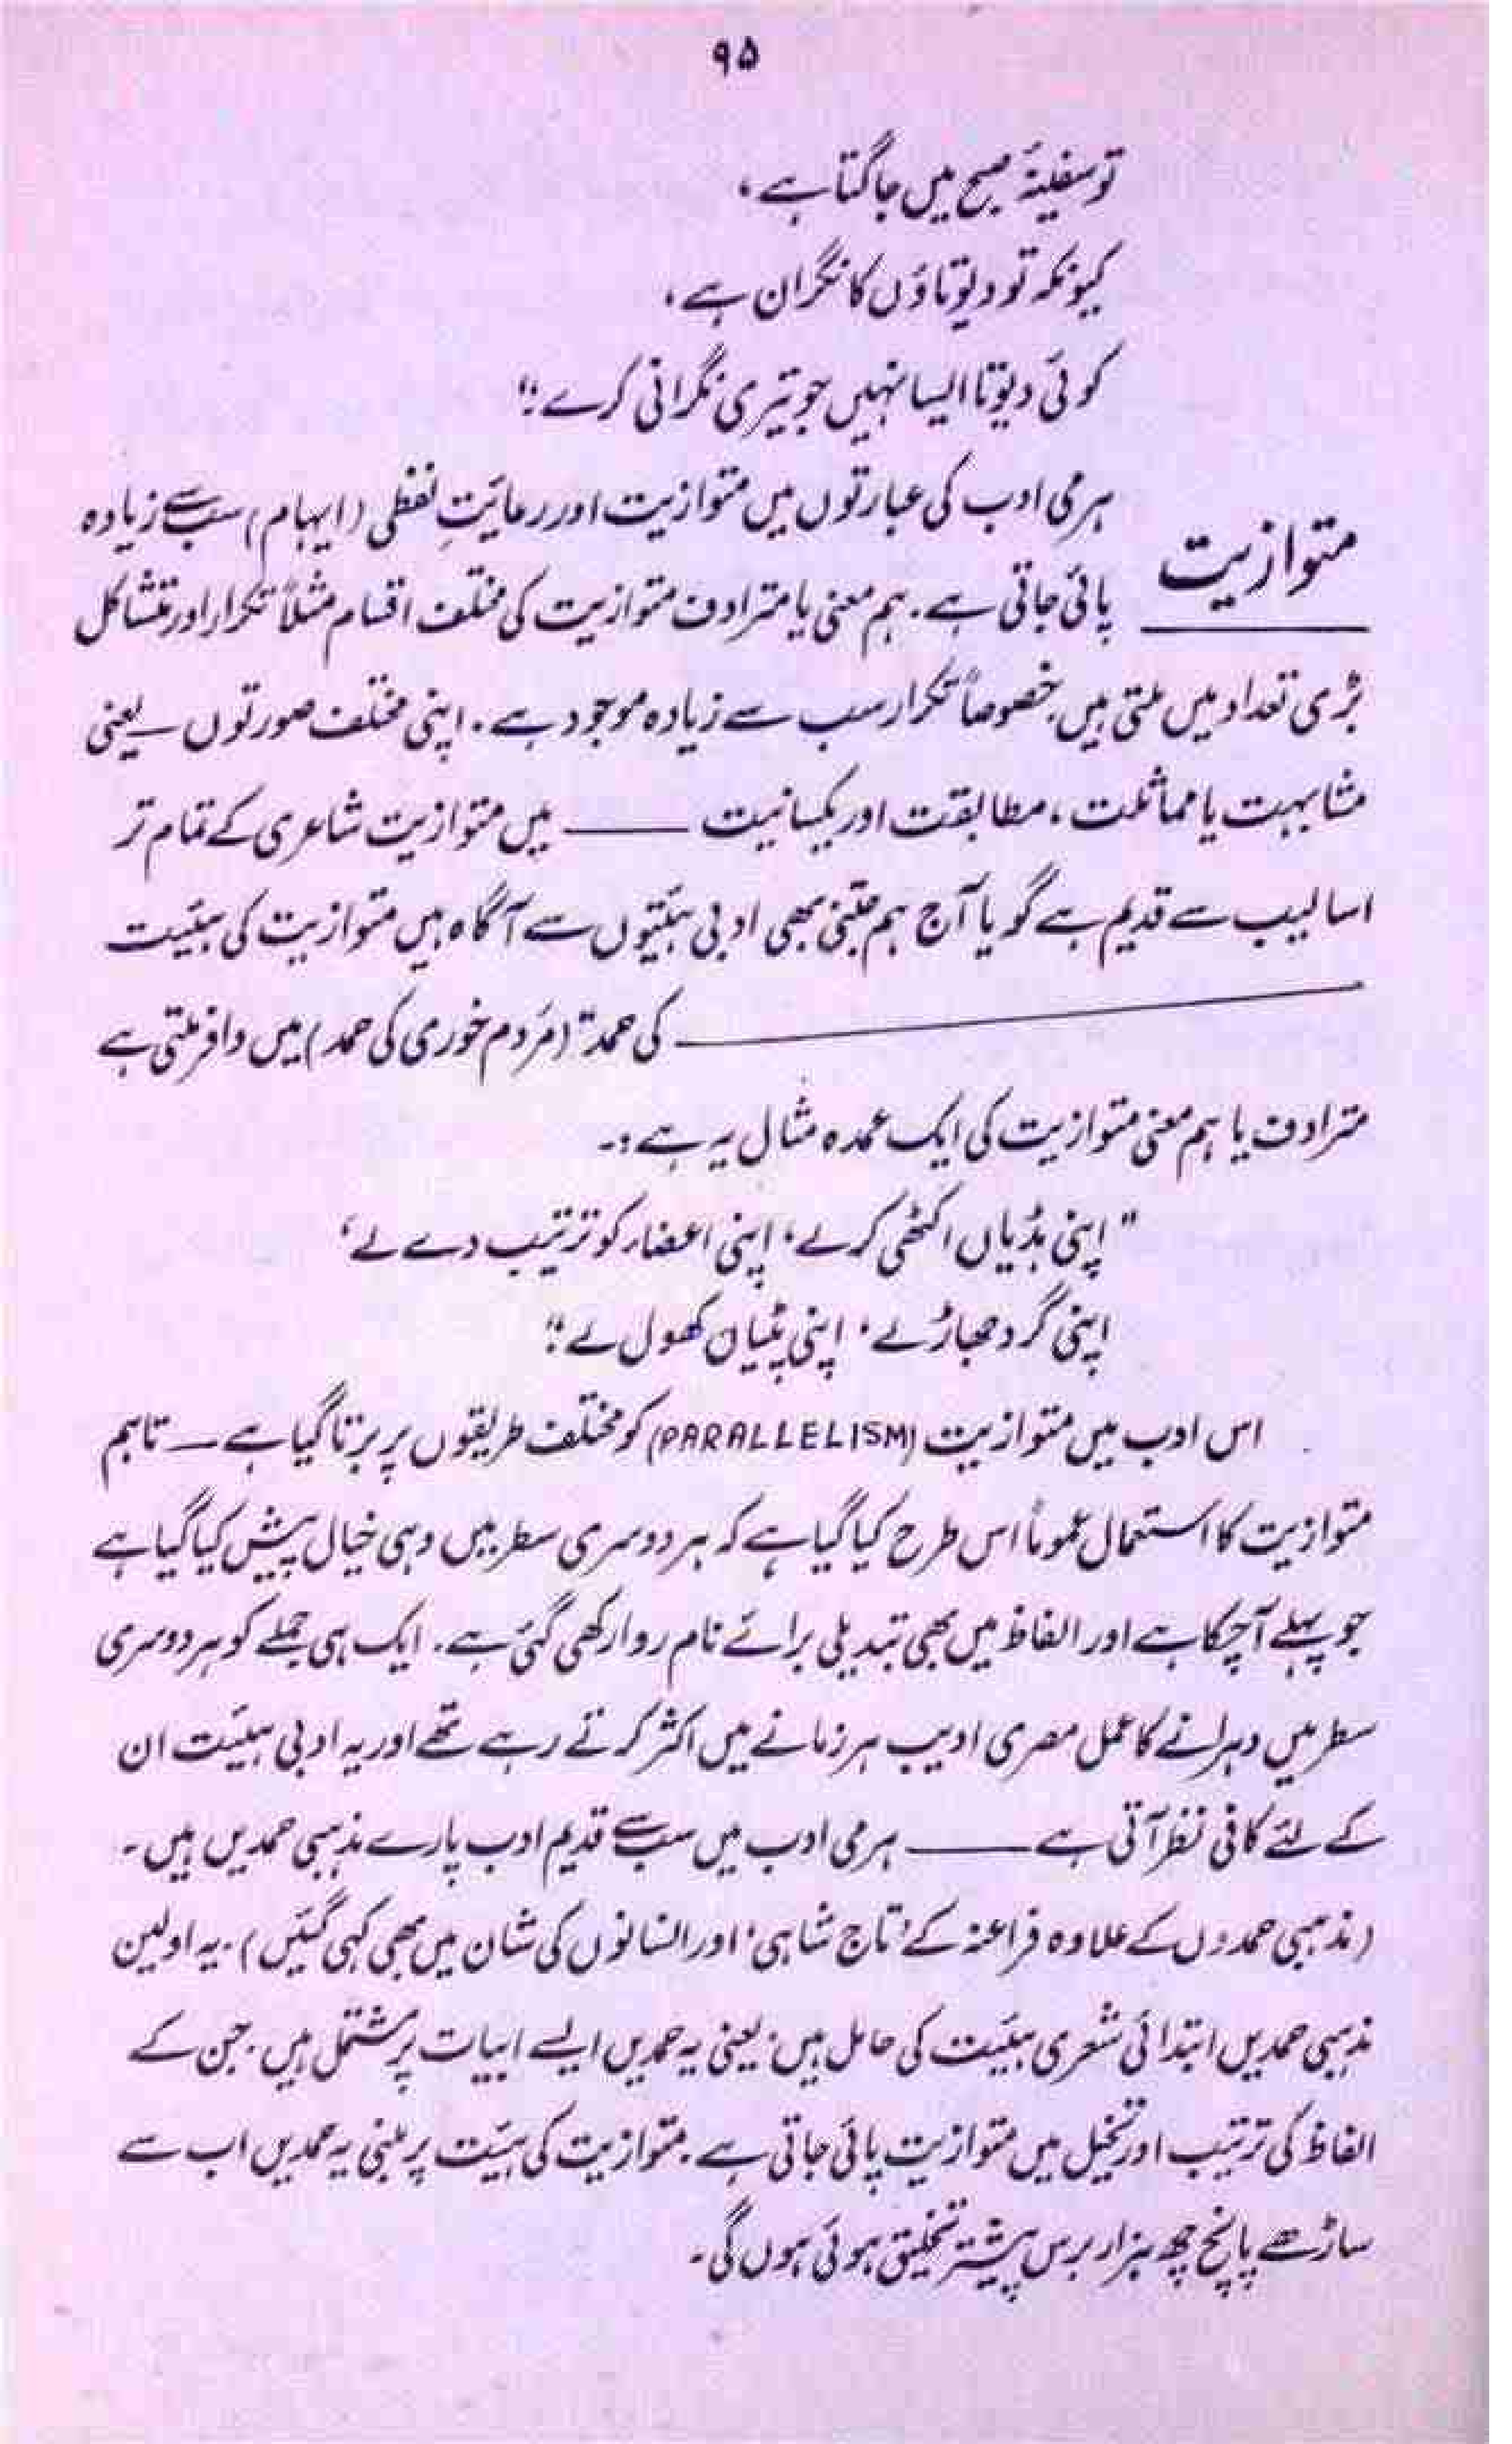 ۹۵
تو سفینۂ صبح میں جاگتا ہے،
کیونکہ تو دیوتاؤں کا نگران ہے،
کوئی دیوتا ایسا نہیں جو تیری نگرانی کرے؛"
متوازیت
ہرمی ادب کی عبارتوں میں متوازیت اور رعایتِ لفظی (ایہام) سب سے زیادہ
پائی جاتی ہے۔ ہم معنی یا مترادف متوازیت کی مختلف اقسام مثلاً تکرار اور تشاکل
بڑی تعداد میں ملتی ہیں خصوصاً تکرار سب سے زیادہ موجود ہے۔ اپنی مختلف صورتوں ــ یعنی
مشابہت یا مماثلت، مطابقت اور یکسانیت ــــــ میں متوازیت شاعری کے تمام تر
اسالیب سے قدیم ہے گویا آج ہم جتنی بھی ادبی ہئیتوں سے آگاہ ہیں متوازیت کی ہیئت
ــــــــــــ کی حمد" (مَردم خوری کی حمد) میں وافر ملتی ہے
مترادف یا ہم معنی متوازیت کی ایک عمدہ مثال یہ ہے:۔
" اپنی ہڈیاں اکٹھی کرلے، اپنی اعضاء کو ترتیب دے لے،
اپنی گرد جھاڑ لے، اپنی پٹیاں کھول لے؛"
اس ادب میں متوازیت (PARALLELISM) کو مختلف طریقوں پر برتا گیا ہے ـــ تاہم
متوازیت کا استعمال عموماً اس طرح کیا گیا ہے کہ ہر دوسری سطر میں وہی خیال پیش کیا گیا ہے
جو پہلے آچکا ہے اور الفاظ میں بھی تبدیلی برائے نام روا رکھی گئی ہے۔ ایک ہی جملے کو ہر دوسری
سطر میں دہرانے کا عمل مصری ادیب ہر زمانے میں اکثر کرتے رہے تھے اور یہ ادبی ہیئت ان
کے لئے کافی نظر آتی ہے ــــــ ہرمی ادب میں سب سے قدیم ادب پارے مذہبی حمدیں ہیں۔
(مذہبی حمدوں کے علاوہ فراعنہ کے 'تاج شاہی' اور انسانوں کی شان میں بھی کہی گئیں)۔ یہ اولین
مذہبی حمدیں ابتدائی شعری ہیئت کی حامل ہیں، یعنی یہ حمدیں ایسے ابیات پر مشتمل ہیں۔ جن کے
الفاظ کی ترتیب اور تخیل میں متوازیت پائی جاتی ہے۔ متوازیت کی ہیئت پر مبنی یہ حمدیں اب سے
ساڑھے پانچ چھ ہزار برس پیشتر تخلیق ہوئی ہوں گی۔